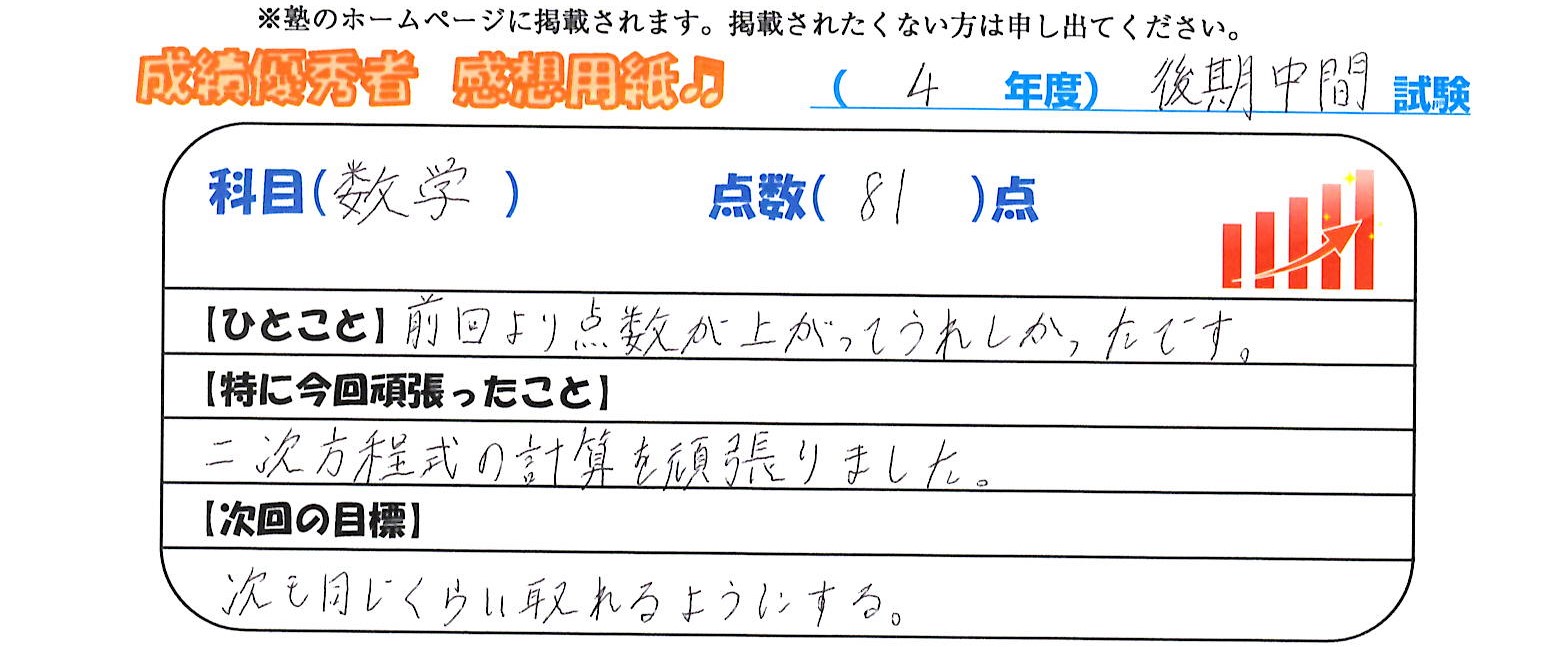 ※塾のホームページに掲載されます。掲載されたくない方は申し出てください。
成績優秀者 感想用紙♫ ( 4 年度) 後期中間 試験
科目(数学 ) 点数( 81 )点
【ひとこと】前回より点数が上がってうれしかったです。
【特に今回頑張ったこと】
二次方程式の計算を頑張りました。
【次回の目標】
次も同じくらい取れるようにする。